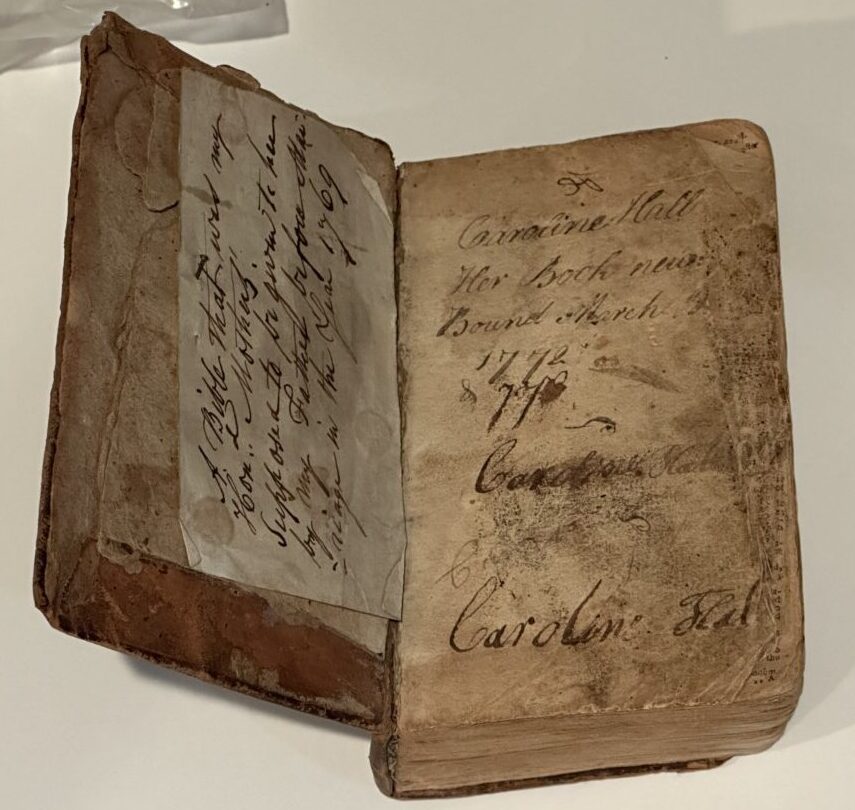 A Bible that was my
Hon.d Mother's.
Supposed to be given to her
by my Father before Mar-
-riage in the Year 1769
Caroline Hall
Her Book new
Bound March
1772
Caroline Hall
C
Caroline Hal